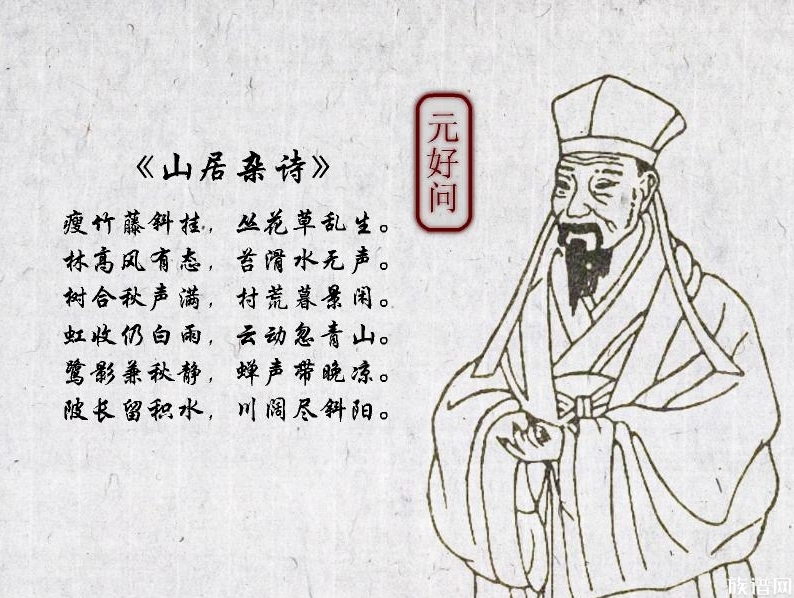 《山居杂诗》
瘦竹藤斜挂，丛花草乱生。
林高风有态，苔滑水无声。
树合秋声满，村荒暮景闲。
虹收仍白雨，云动忽青山。
鹭影兼秋静，蝉声带晚凉。
陂长留积水，川阔尽斜阳。
元好问
族谱网